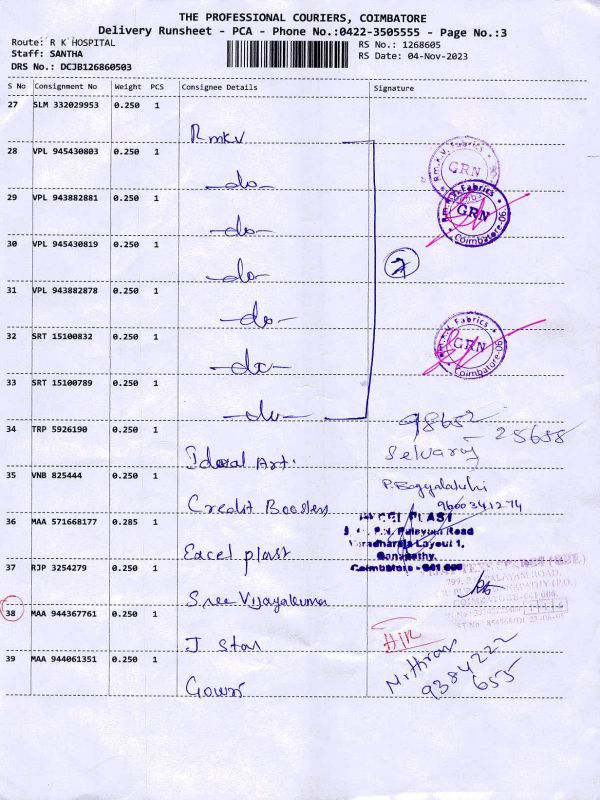 THE PROFESSIONAL COURIERS, COIMBATORE
Delivery Runsheet - PCA - Phone No.:0422-3505555 - Page No.:3
Route: R K HOSPITAL
Staff: SANTHA
DRS No.: DCJB126860503
RS No.: 1268605
RS Date: 04-Nov-2023
S No Consignment No Weight PCS Consignee Details Signature
27 SLM 332029953 0.250 1
Rmkv
28 VPL 945430803 0.250 1
-do-
29 VPL 943882881 0.250 1
-do-
30 VPL 945430819 0.250 1
-do-
31 VPL 943882878 0.250 1
-do-
32 SRT 15100832 0.250 1
-do-
33 SRT 15100789 0.250 1
-do-
7
R.m.K.V. Fabrics
GRN
R.m.K.V. Fabrics
GRN
Coimbatore-06
R.m.K.V. Fabrics
GRN
Coimbatore-06
34 TRP 5926190 0.250 1
Ideal Art.
98652
- 25658
Selvaraj
35 VNB 825444 0.250 1
Credit Boosters
9600341274
36 MAA 571668177 0.285 1
Excel plast
PLAST
Palayam Road
Layout 1,
Ganapathy,
Coimbatore - 641 006
37 RJP 3254279 0.250 1
Sree Vijayakumar
38 MAA 944367761 0.250 1
J Star
AIR
39 MAA 944061351 0.250 1
Gowri
Mithran
9384222
655